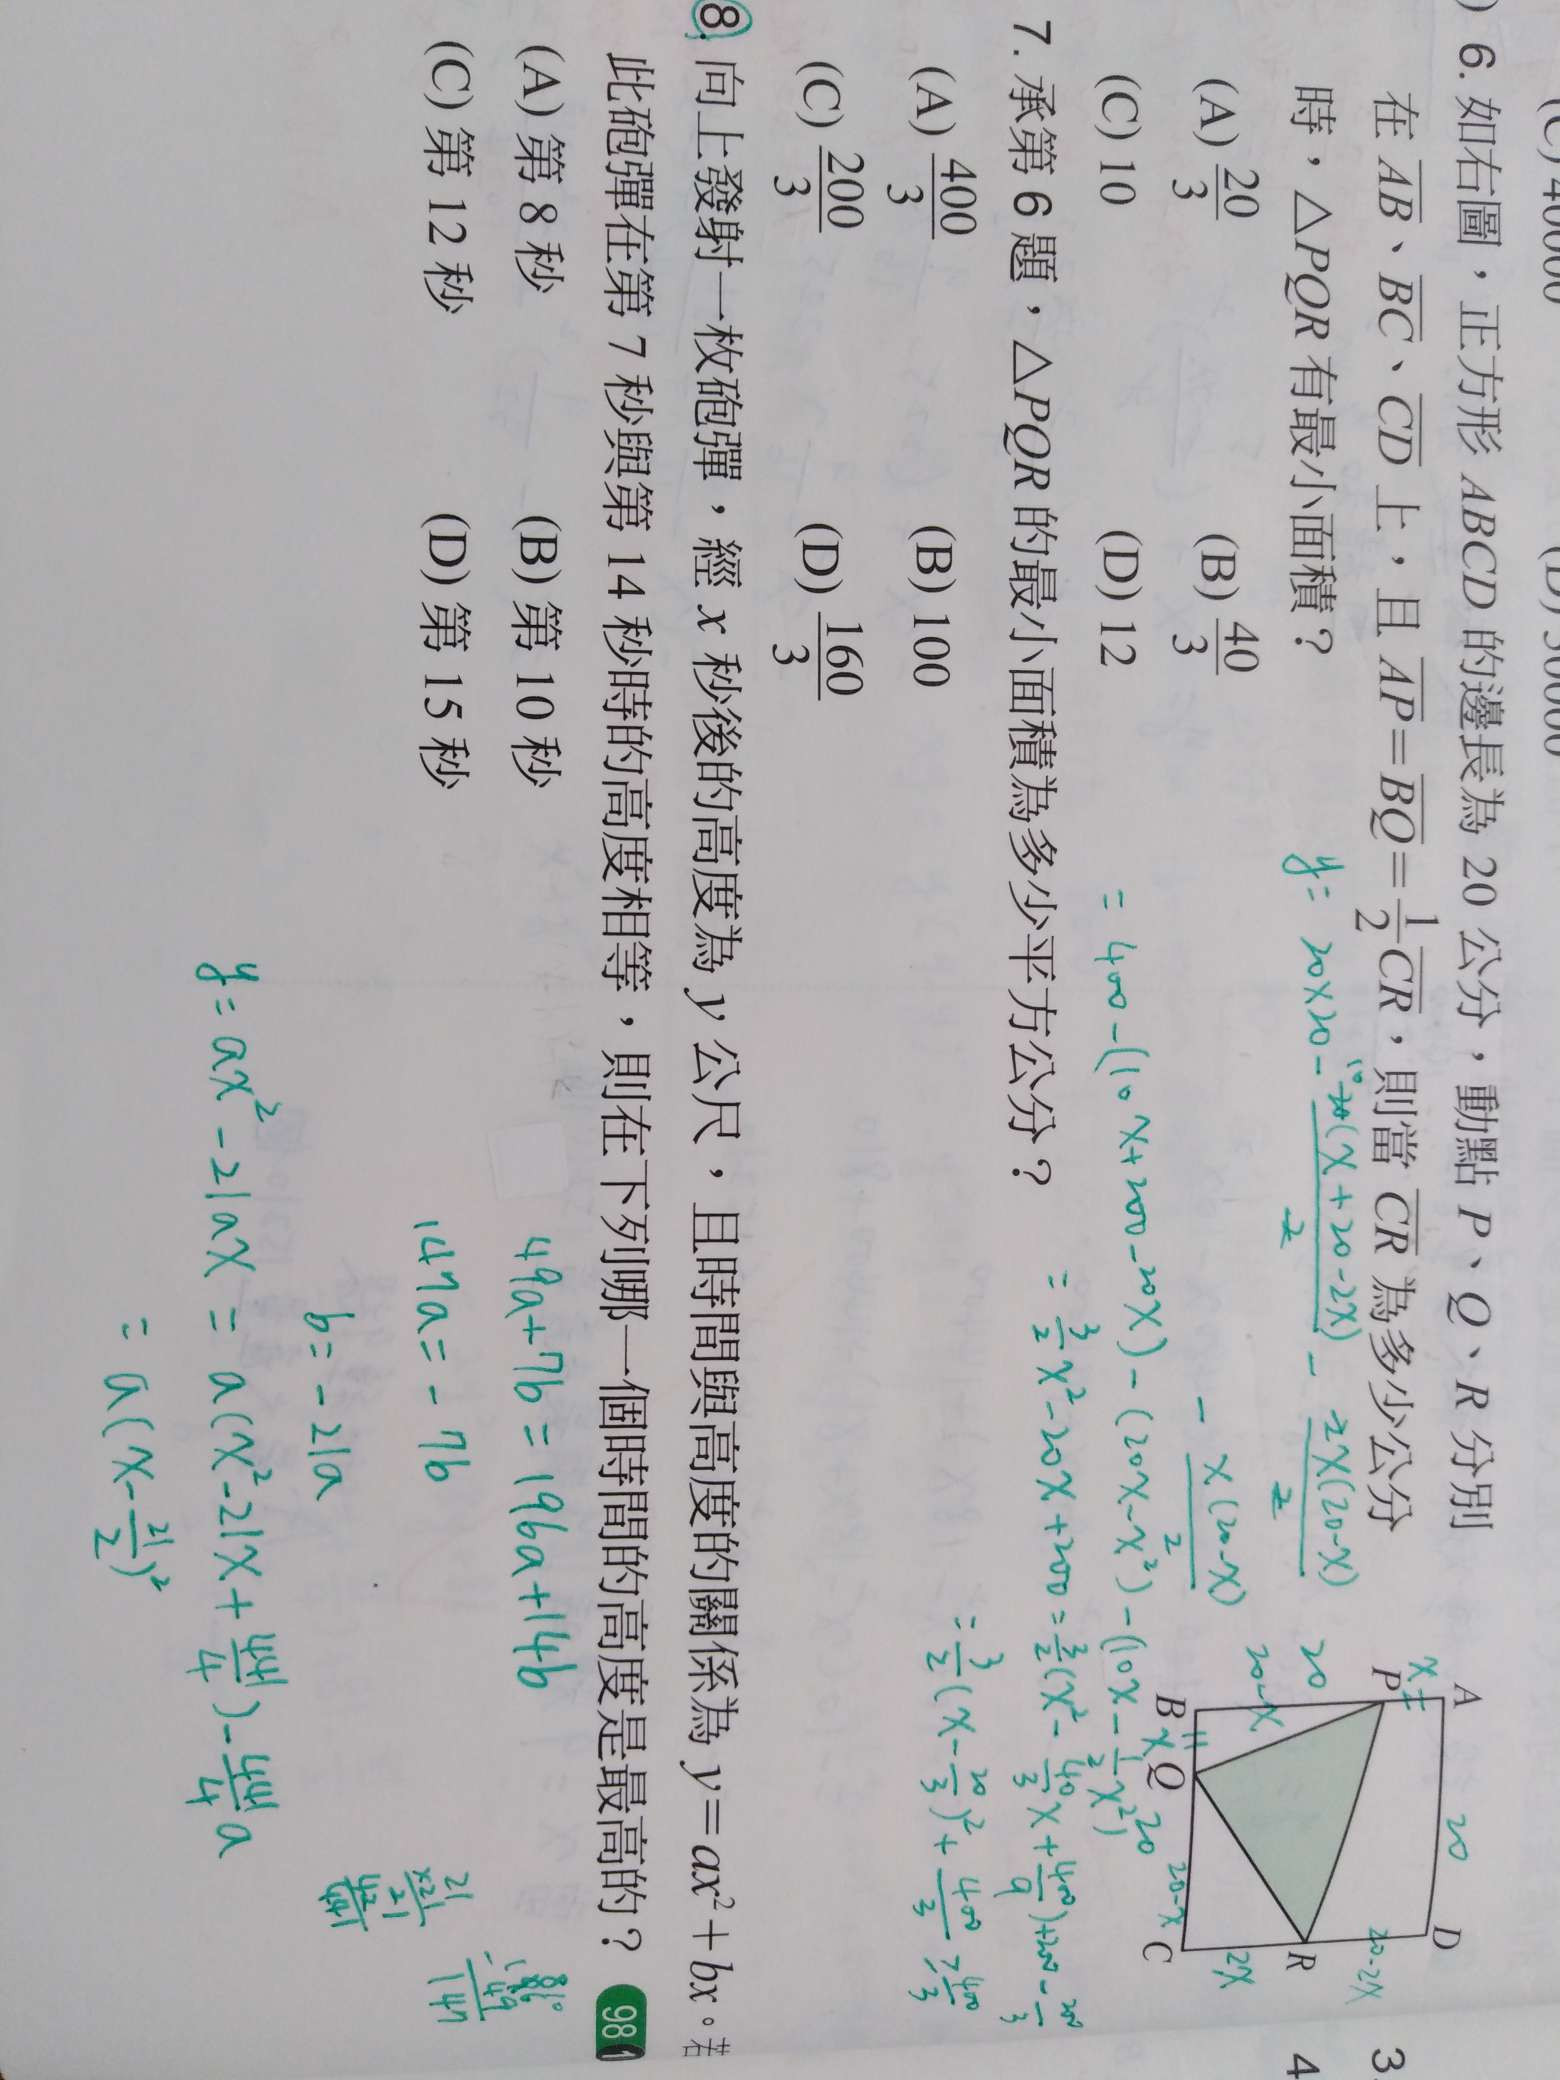 (C) 40000 (D) 50000
) 6. 如右圖，正方形 ABCD 的邊長為 20 公分，動點 P、Q、R 分別
在 AB、BC、CD 上，且 AP=BQ=1/2 CR，則當 CR 為多少公分
時，△PQR 有最小面積？
(A) 20/3 (B) 40/3
(C) 10 (D) 12
A
P
B
Q
C
R
D
x
20
20-x
x
20
20-x
2x
20-2x
20
y= 20×20 - 20(x+20-2x)/2 - 2x(20-x)/2
10
- x(20-x)/2
= 400-(10x+200-20x)-(20x-x²)-(10x-1/2x²)
7. 承第 6 題，△PQR 的最小面積為多少平方公分？
= 3/2x²-20x+200 = 3/2(x²-40/3x+400/9)+200-200/3
(A) 400/3 (B) 100
= 3/2(x-20/3)²+400/3 ≥ 400/3
(C) 200/3 (D) 160/3
8. 向上發射一枚砲彈，經 x 秒後的高度為 y 公尺，且時間與高度的關係為 y=ax²+bx。若
此砲彈在第 7 秒與第 14 秒時的高度相等，則在下列哪一個時間的高度是最高的？ 98
(A) 第 8 秒 (B) 第 10 秒
(C) 第 12 秒 (D) 第 15 秒
49a+7b=196a+14b
147a=-7b
b=-21a
y=ax²-21ax = a(x²-21x+441/4)-441/4a
= a(x-21/2)²
21
×21
21
42
441
196
-49
147
3.
4